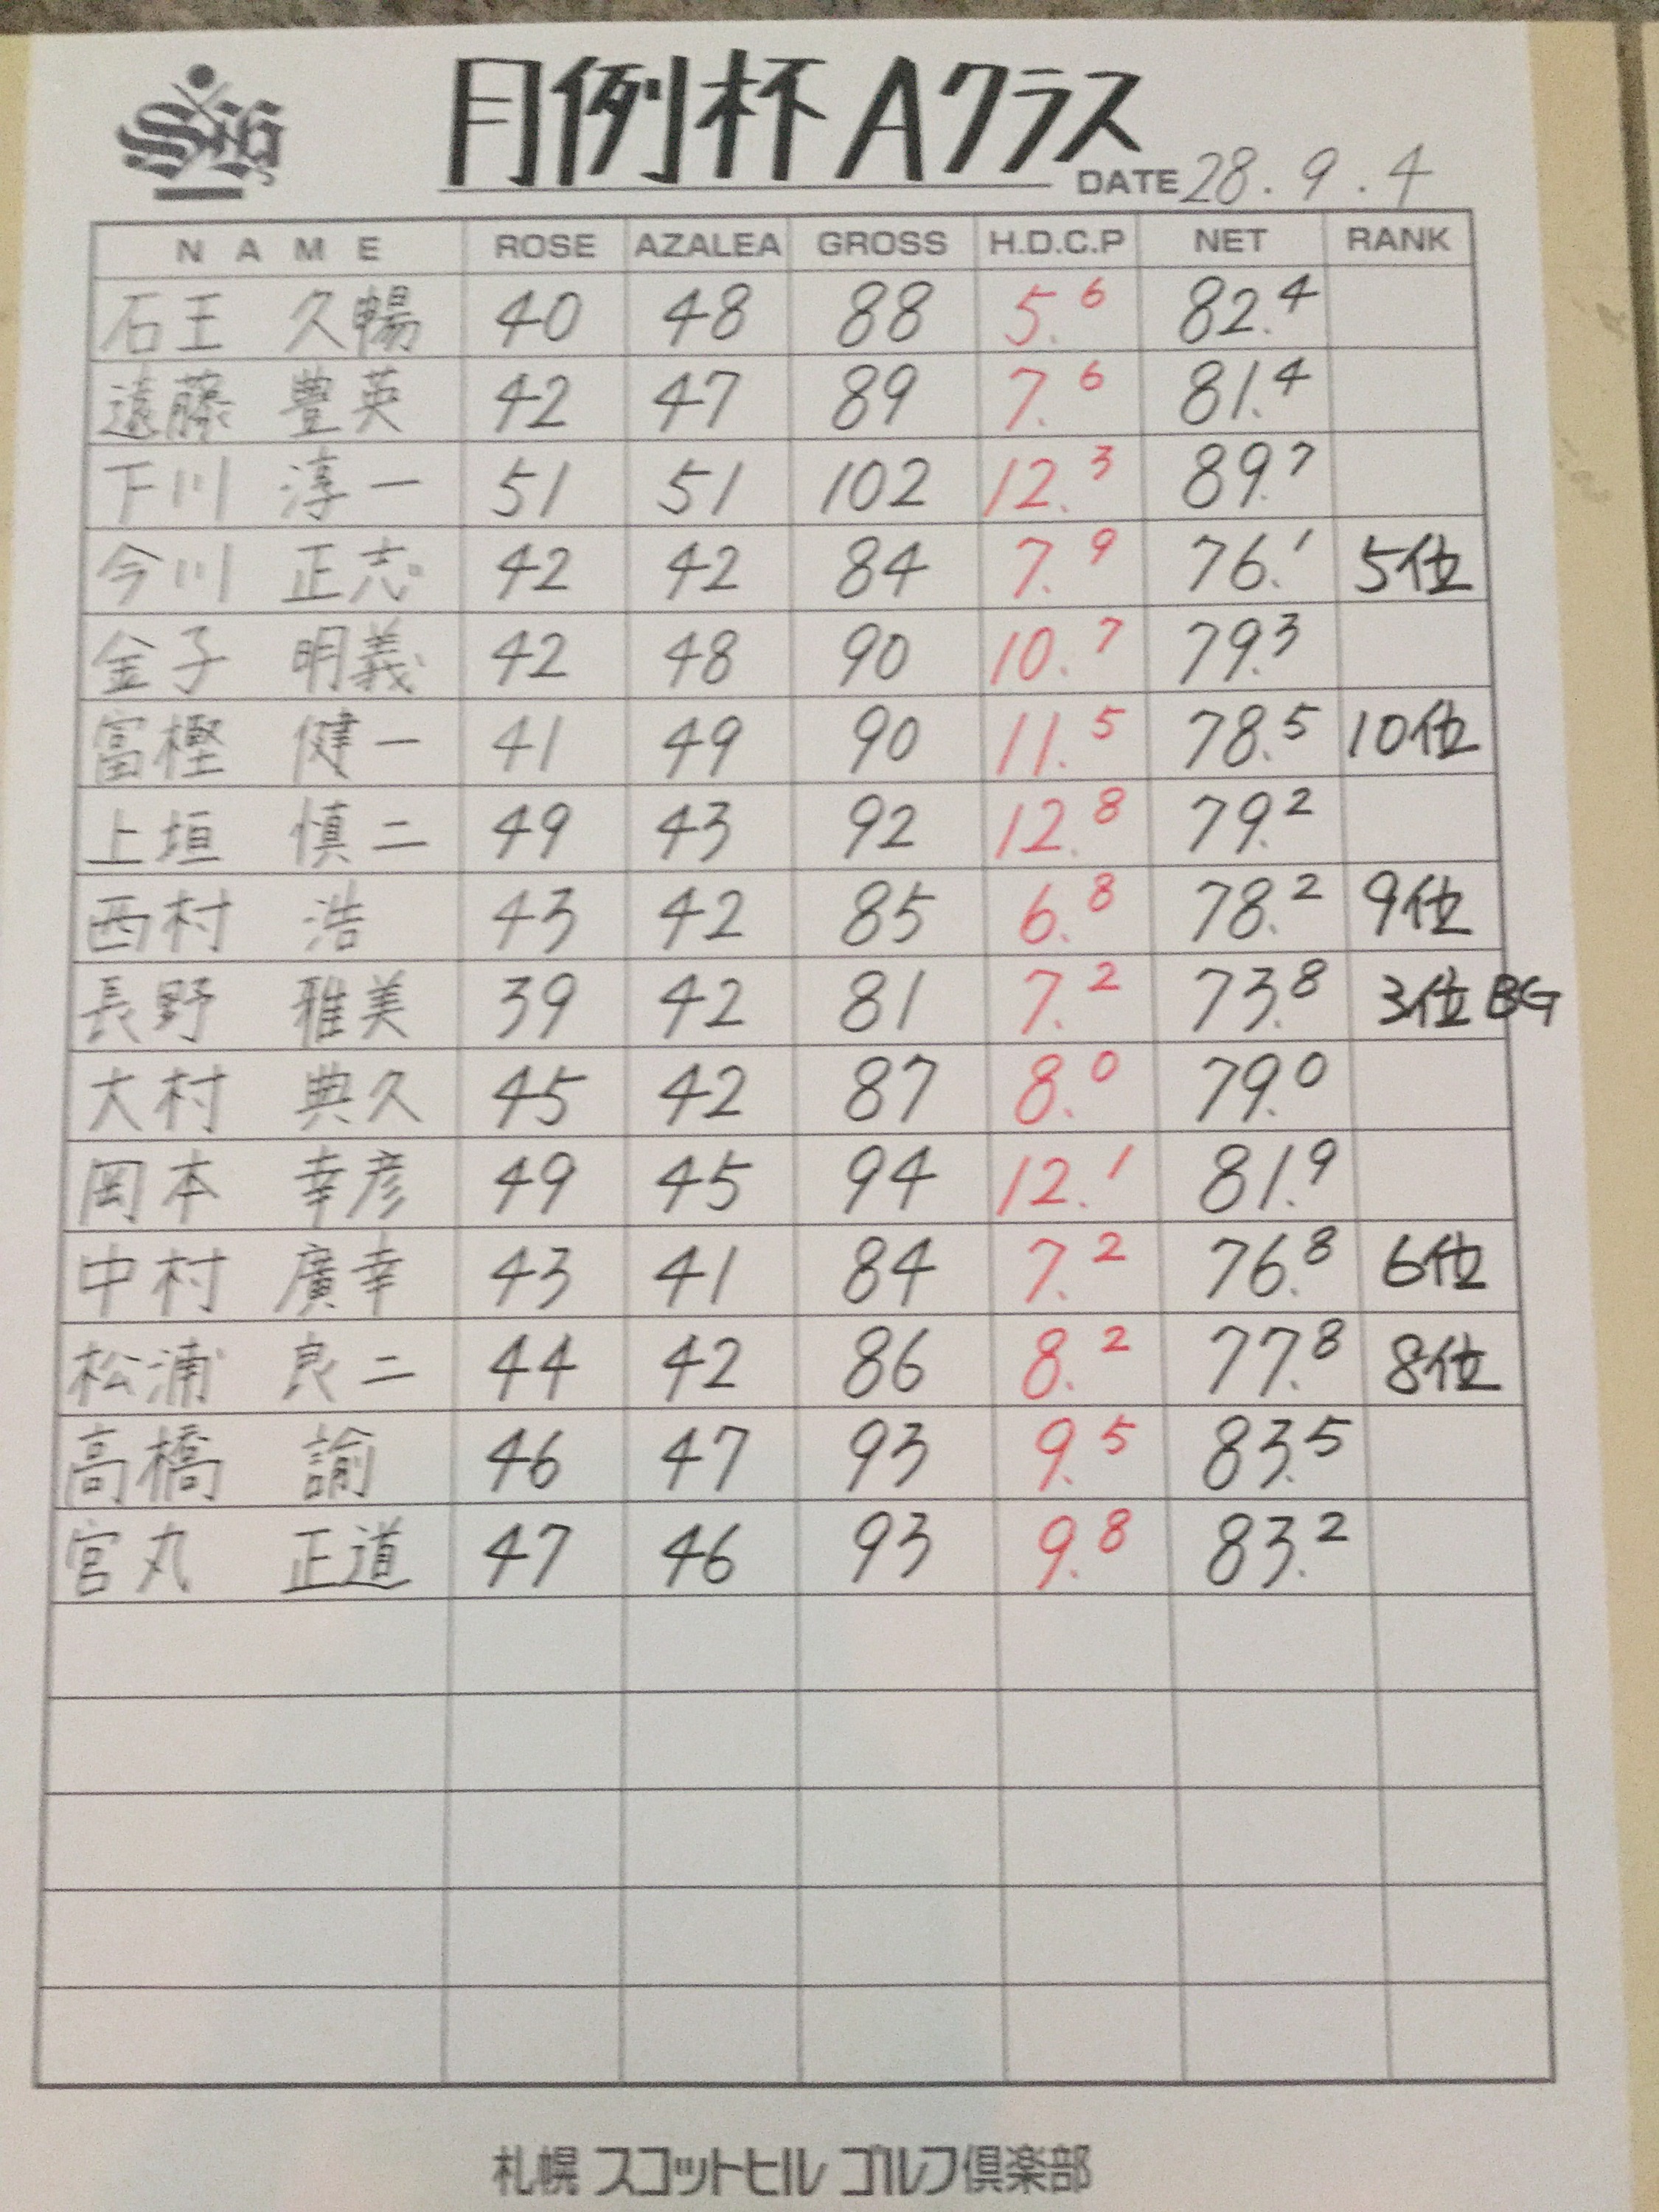 月例杯 Aクラス
DATE 28.9.4
NAME ROSE AZALEA GROSS H.D.C.P NET RANK
石王 久暢 40 48 88 5.6 82.4
遠藤 豊英 42 47 89 7.6 81.4
下川 淳一 51 51 102 12.3 89.7
今川 正志 42 42 84 7.9 76.1 5位
金子 明義 42 48 90 10.7 79.3
富樫 健一 41 49 90 11.5 78.5 10位
上垣 慎二 49 43 92 12.8 79.2
西村 浩 43 42 85 6.8 78.2 9位
長野 雅美 39 42 81 7.2 73.8 3位 BG
大村 典久 45 42 87 8.0 79.0
岡本 幸彦 49 45 94 12.1 81.9
中村 廣幸 43 41 84 7.2 76.8 6位
松浦 良二 44 42 86 8.2 77.8 8位
高橋 諭 46 47 93 9.5 83.5
宮丸 正道 47 46 93 9.8 83.2
札幌 スコットヒル ゴルフ倶楽部